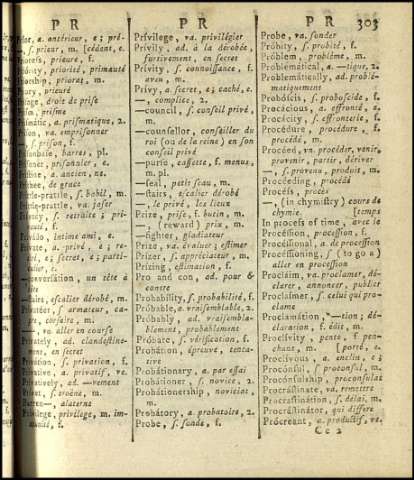 P R
P R
P R 303
a. antérieur, e ; pré-
, f. prieur, m. [cédent, e.
prieure, f.
priorité, primauté
prieuré
droit de prise
prisme
a. prismatique, 2.
va. emprisonner
—, f. prison, f.
barres, pl.
prisonnier, e.
a. ancien, ne.
de grace
Prittle-prattle, f. babil, m.
Prittle-prattle, va. jaser
f. retraite ; pri-
f.
intime ami, e.
a. privé, à ;
e ; secret, e ; parti-
culier, e.
un tête à
tête
escalier dérobé, m.
f. armateur, ca-
corsaire, m.
—, va. aller en course
ad. clandestine-
ment, en secret
f. privation, f.
a. privatif, ve.
ad. —vement
f. troène, m.
alaterne
Privilege, privilege, m. im-
munité, f.
Prívilege, va. privilégier
Prívily, ad. à la dérobée,
furtivement, en secret
Prívity, f. connoissance, f.
aveu, m.
Privy, a. secret, e ; caché, e.
—, complice, 2.
—council, f. conseil privé,
m.
—counsellor, conseiller du
roi (ou de la reine) en son
conseil privé
—purse, cassette, f. menus,
m. pl.
—seal, petit sceau, m.
—stairs, escalier dérobé
—, le privé, les lieux
Prize, prise, f. butin, m.
—, (reward) prix, m.
—fighter, gladiateur
Prize, va. évaluer ; estimer
Prízer, f. appréciateur, m.
Prízing, estimation, f.
Pro and con, ad. pour &
contre
Probability, f. probabilité, f.
Próbable, a. vraisemblable, 2.
Próbably, ad. vraisembla-
blement, probablement
Próbate, f. vérification, f.
Probátion, épreuve, tenta-
tive
Probátionary, a. par essai
Probátioner, f. novice, 2.
Probátionership, noviciat,
m.
Próbatory, a. probatoire, 2.
Probe, f. sonde, f.
Probe, va. sonder
Próbity, f. probité, f.
Próblem, problême, m.
Problemátical, a. —tique, 2.
Problemátically, ad. problé-
matiquement
Probóscis, f. proboscide, f.
Procácious, a. effronté, e.
Procácity, f. effronterie, f.
Procédure, procédure, f.
procédé, m.
Procéed, va. procéder, venir,
provenir, partir, dériver
—, f. provenu, produit, m.
Procéeding, procédé
Prócess, procès
—, (in chymistry) cours de
chymie. [temps
In process of time, avec le
Procéssion, procession, f.
Procéssional, a. de procession
Procéssioning, f. (to go a)
aller en procession
Procláim, va. proclamer, dé-
clarer, annoncer, publier
Procláimer, f. celui qui pro-
clame
Proclamátion, —tion ; dé-
claration, f. édit, m.
Proclívity, pente, f. pen-
chant, m. [porté, e.
Proclívous, a. enclin, e ;
Procónsul, f. proconsul, m.
Procónsulship, proconsulat
Procrástinate, va. remettre
Procrastinátion, f. délai, m.
Procrástinator, qui differe
Prócreant, a. productif, ve.
Cc 2